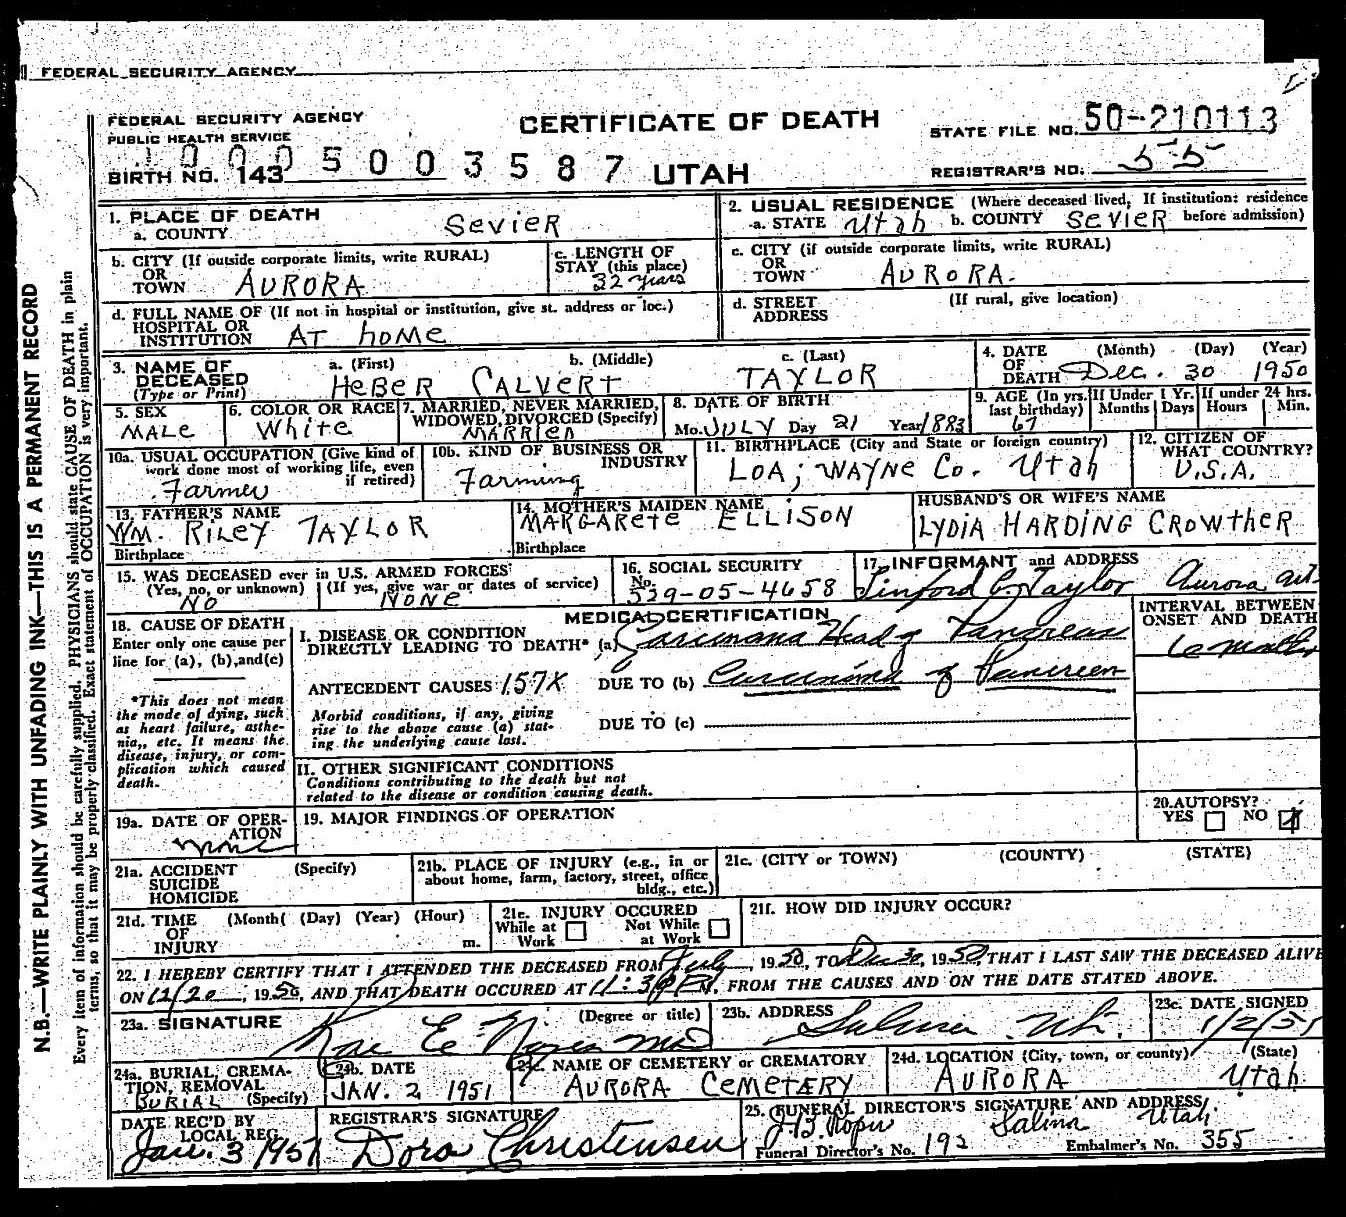 FEDERAL SECURITY AGENCY
FEDERAL SECURITY AGENCY
PUBLIC HEALTH SERVICE
CERTIFICATE OF DEATH
STATE FILE NO. 50-210113
1 0 0 0 5 0 0 3 5 8 7
BIRTH NO. 143
UTAH
REGISTRAR'S NO. 55
N.B.—WRITE PLAINLY WITH UNFADING INK—THIS IS A PERMANENT RECORD
Every item of information should be carefully supplied. PHYSICIANS should state CAUSE OF DEATH in plain
terms, so that it may be properly classified. Exact statement of OCCUPATION is very important.
1. PLACE OF DEATH
a. COUNTY SEVIER
2. USUAL RESIDENCE (Where deceased lived, If institution: residence
before admission)
a. STATE Utah b. COUNTY SEVIER
b. CITY (If outside corporate limits, write RURAL)
OR
TOWN AURORA
c. LENGTH OF
STAY (this place)
32 years
c. CITY (if outside corporate limits, write RURAL)
OR
TOWN AURORA.
d. FULL NAME OF (If not in hospital or institution, give st. address or loc.)
HOSPITAL OR
INSTITUTION AT HOME
d. STREET (If rural, give location)
ADDRESS
3. NAME OF
DECEASED
(Type or Print)
a. (First) b. (Middle) c. (Last)
HEBER CALVERT TAYLOR
4. DATE (Month) (Day) (Year)
OF
DEATH Dec. 30 1950
5. SEX
MALE
6. COLOR OR RACE
White
7. MARRIED, NEVER MARRIED,
WIDOWED, DIVORCED (Specify)
MARRIED
8. DATE OF BIRTH
Mo. JULY Day 21 Year 1883
9. AGE (In yrs.
last birthday)
67
If Under 1 Yr.
Months Days
If under 24 hrs.
Hours Min.
10a. USUAL OCCUPATION (Give kind of
work done most of working life, even
if retired)
Farmer
10b. KIND OF BUSINESS OR
INDUSTRY
Farming
11. BIRTHPLACE (City and State or foreign country)
LOA; WAYNE Co. Utah
12. CITIZEN OF
WHAT COUNTRY?
U.S.A.
13. FATHER'S NAME
WM. RILEY TAYLOR
Birthplace
14. MOTHER'S MAIDEN NAME
MARGARETE ELLISON
Birthplace
HUSBAND'S OR WIFE'S NAME
LYDIA HARDING CROWTHER
15. WAS DECEASED ever in U.S. ARMED FORCES?
(Yes, no, or unknown) (If yes, give war or dates of service)
NO NONE
16. SOCIAL SECURITY
No.
529-05-4658
17. INFORMANT and ADDRESS
Linford C. Taylor Aurora Ut.
18. CAUSE OF DEATH
Enter only one cause per
line for (a), (b), and (c)
*This does not mean
the mode of dying, such
as heart failure, asthe-
nia,, etc. It means the
disease, injury, or com-
plication which caused
death.
MEDICAL CERTIFICATION
INTERVAL BETWEEN
ONSET AND DEATH
I. DISEASE OR CONDITION
DIRECTLY LEADING TO DEATH* (a) Carcinoma Head of Pancreas 6 months
ANTECEDENT CAUSES 157X DUE TO (b) Carcinoma of Pancreas
Morbid conditions, if any, giving
rise to the above cause (a) stat-
ing the underlying cause last.
DUE TO (c)
II. OTHER SIGNIFICANT CONDITIONS
Conditions contributing to the death but not
related to the disease or condition causing death.
19a. DATE OF OPER-
ATION
none
19. MAJOR FINDINGS OF OPERATION
20. AUTOPSY?
YES NO
21a. ACCIDENT (Specify)
SUICIDE
HOMICIDE
21b. PLACE OF INJURY (e.g., in or
about home, farm, factory, street, office
bldg., etc.)
21c. (CITY or TOWN) (COUNTY) (STATE)
21d. TIME (Month( (Day) (Year) (Hour)
OF
INJURY m.
21e. INJURY OCCURED
While at Work Not While at Work
21f. HOW DID INJURY OCCUR?
22. I HEREBY CERTIFY THAT I ATTENDED THE DECEASED FROM July, 1950, TO Dec 30, 1950 THAT I LAST SAW THE DECEASED ALIVE
ON 12/20, 1950, AND THAT DEATH OCCURED AT 11:30 P.M. FROM THE CAUSES AND ON THE DATE STATED ABOVE.
23a. SIGNATURE (Degree or title)
Rae E. MD
23b. ADDRESS
Salina Ut.
23c. DATE SIGNED
1/2/51
24a. BURIAL, CREMA-
TION, REMOVAL
(Specify)
BURIAL
24b. DATE
JAN. 2 1951
24c. NAME OF CEMETERY OR CREMATORY
AURORA CEMETERY
24d. LOCATION (City, town, or county) (State)
AURORA Utah
DATE REC'D BY
LOCAL REG.
Jan. 3 1951
REGISTRAR'S SIGNATURE
Dora Christensen
25. FUNERAL DIRECTOR'S SIGNATURE AND ADDRESS
Salina Utah
Funeral Director's No. 192 Embalmer's No. 355